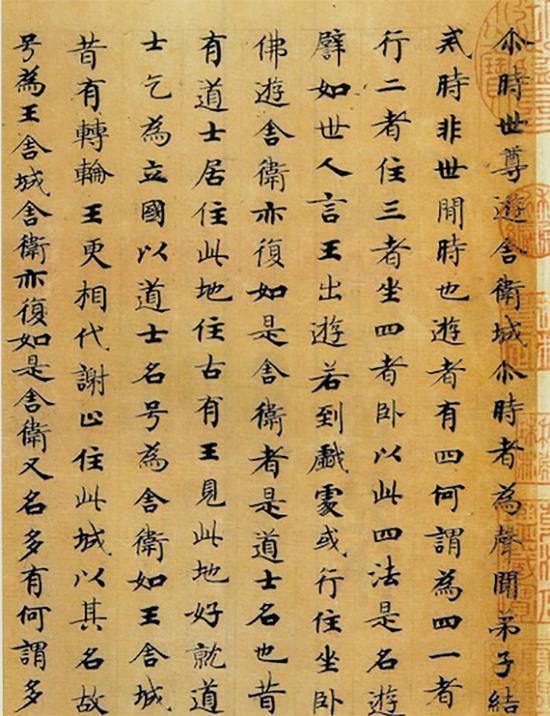 尒時世尊遊舍衛城尒時者為聲聞弟子結
戒時非世間時也遊者有四何謂為四一者
行二者住三者坐四者卧以此四法是名遊
譬如世人言王出遊若到戲處或行住坐卧
佛遊舍衛亦復如是舍衛者是道士名也昔
有道士居住此地住古有王見此地好就道
士乞為立國以道士名号為舍衛如王舍城
昔有轉輪王更相代謝止住此城以其名故
号為王舍城舍衛亦復如是舍衛又名多有何謂多